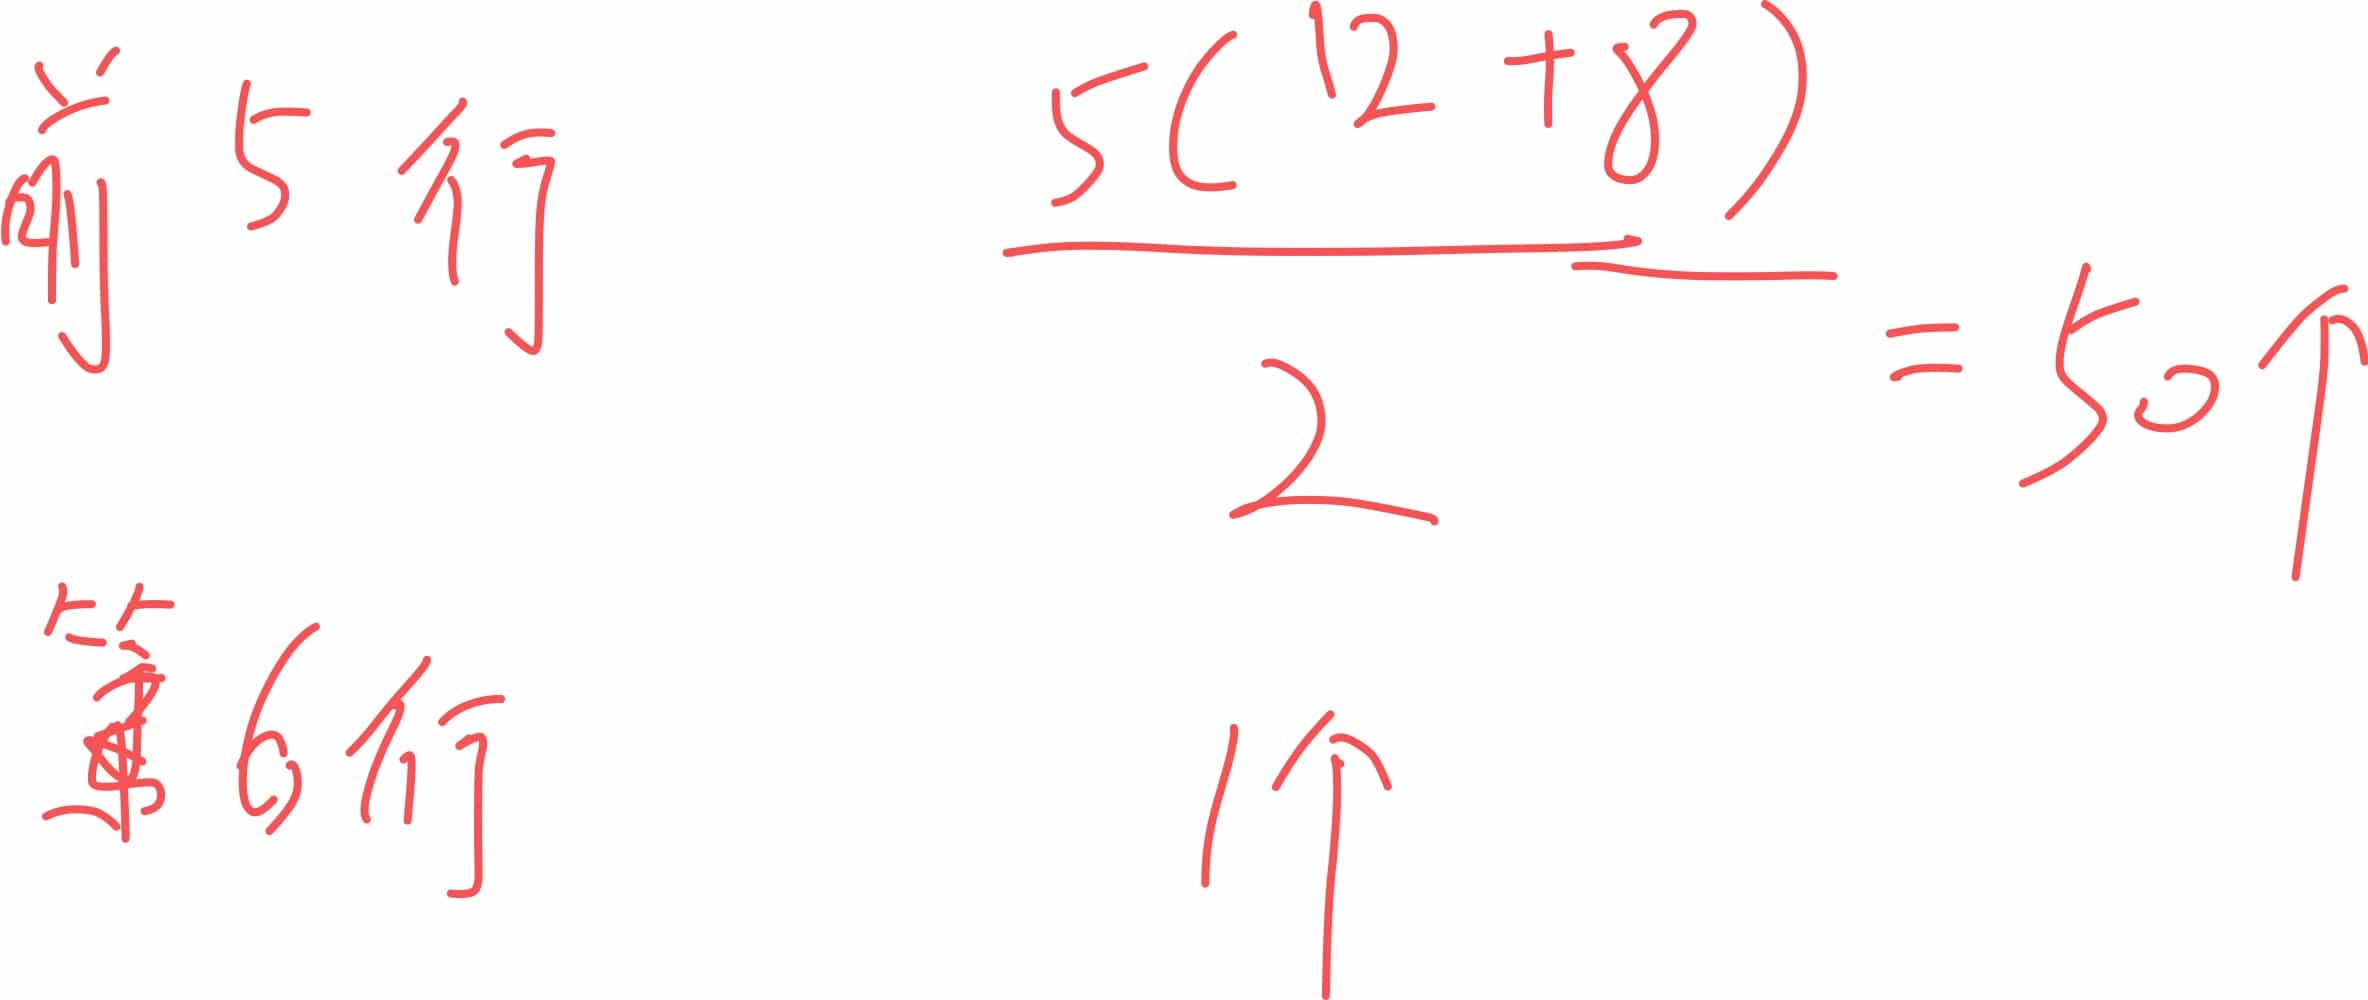 前5行 5(12+8)/2 =50个
第6行 1个